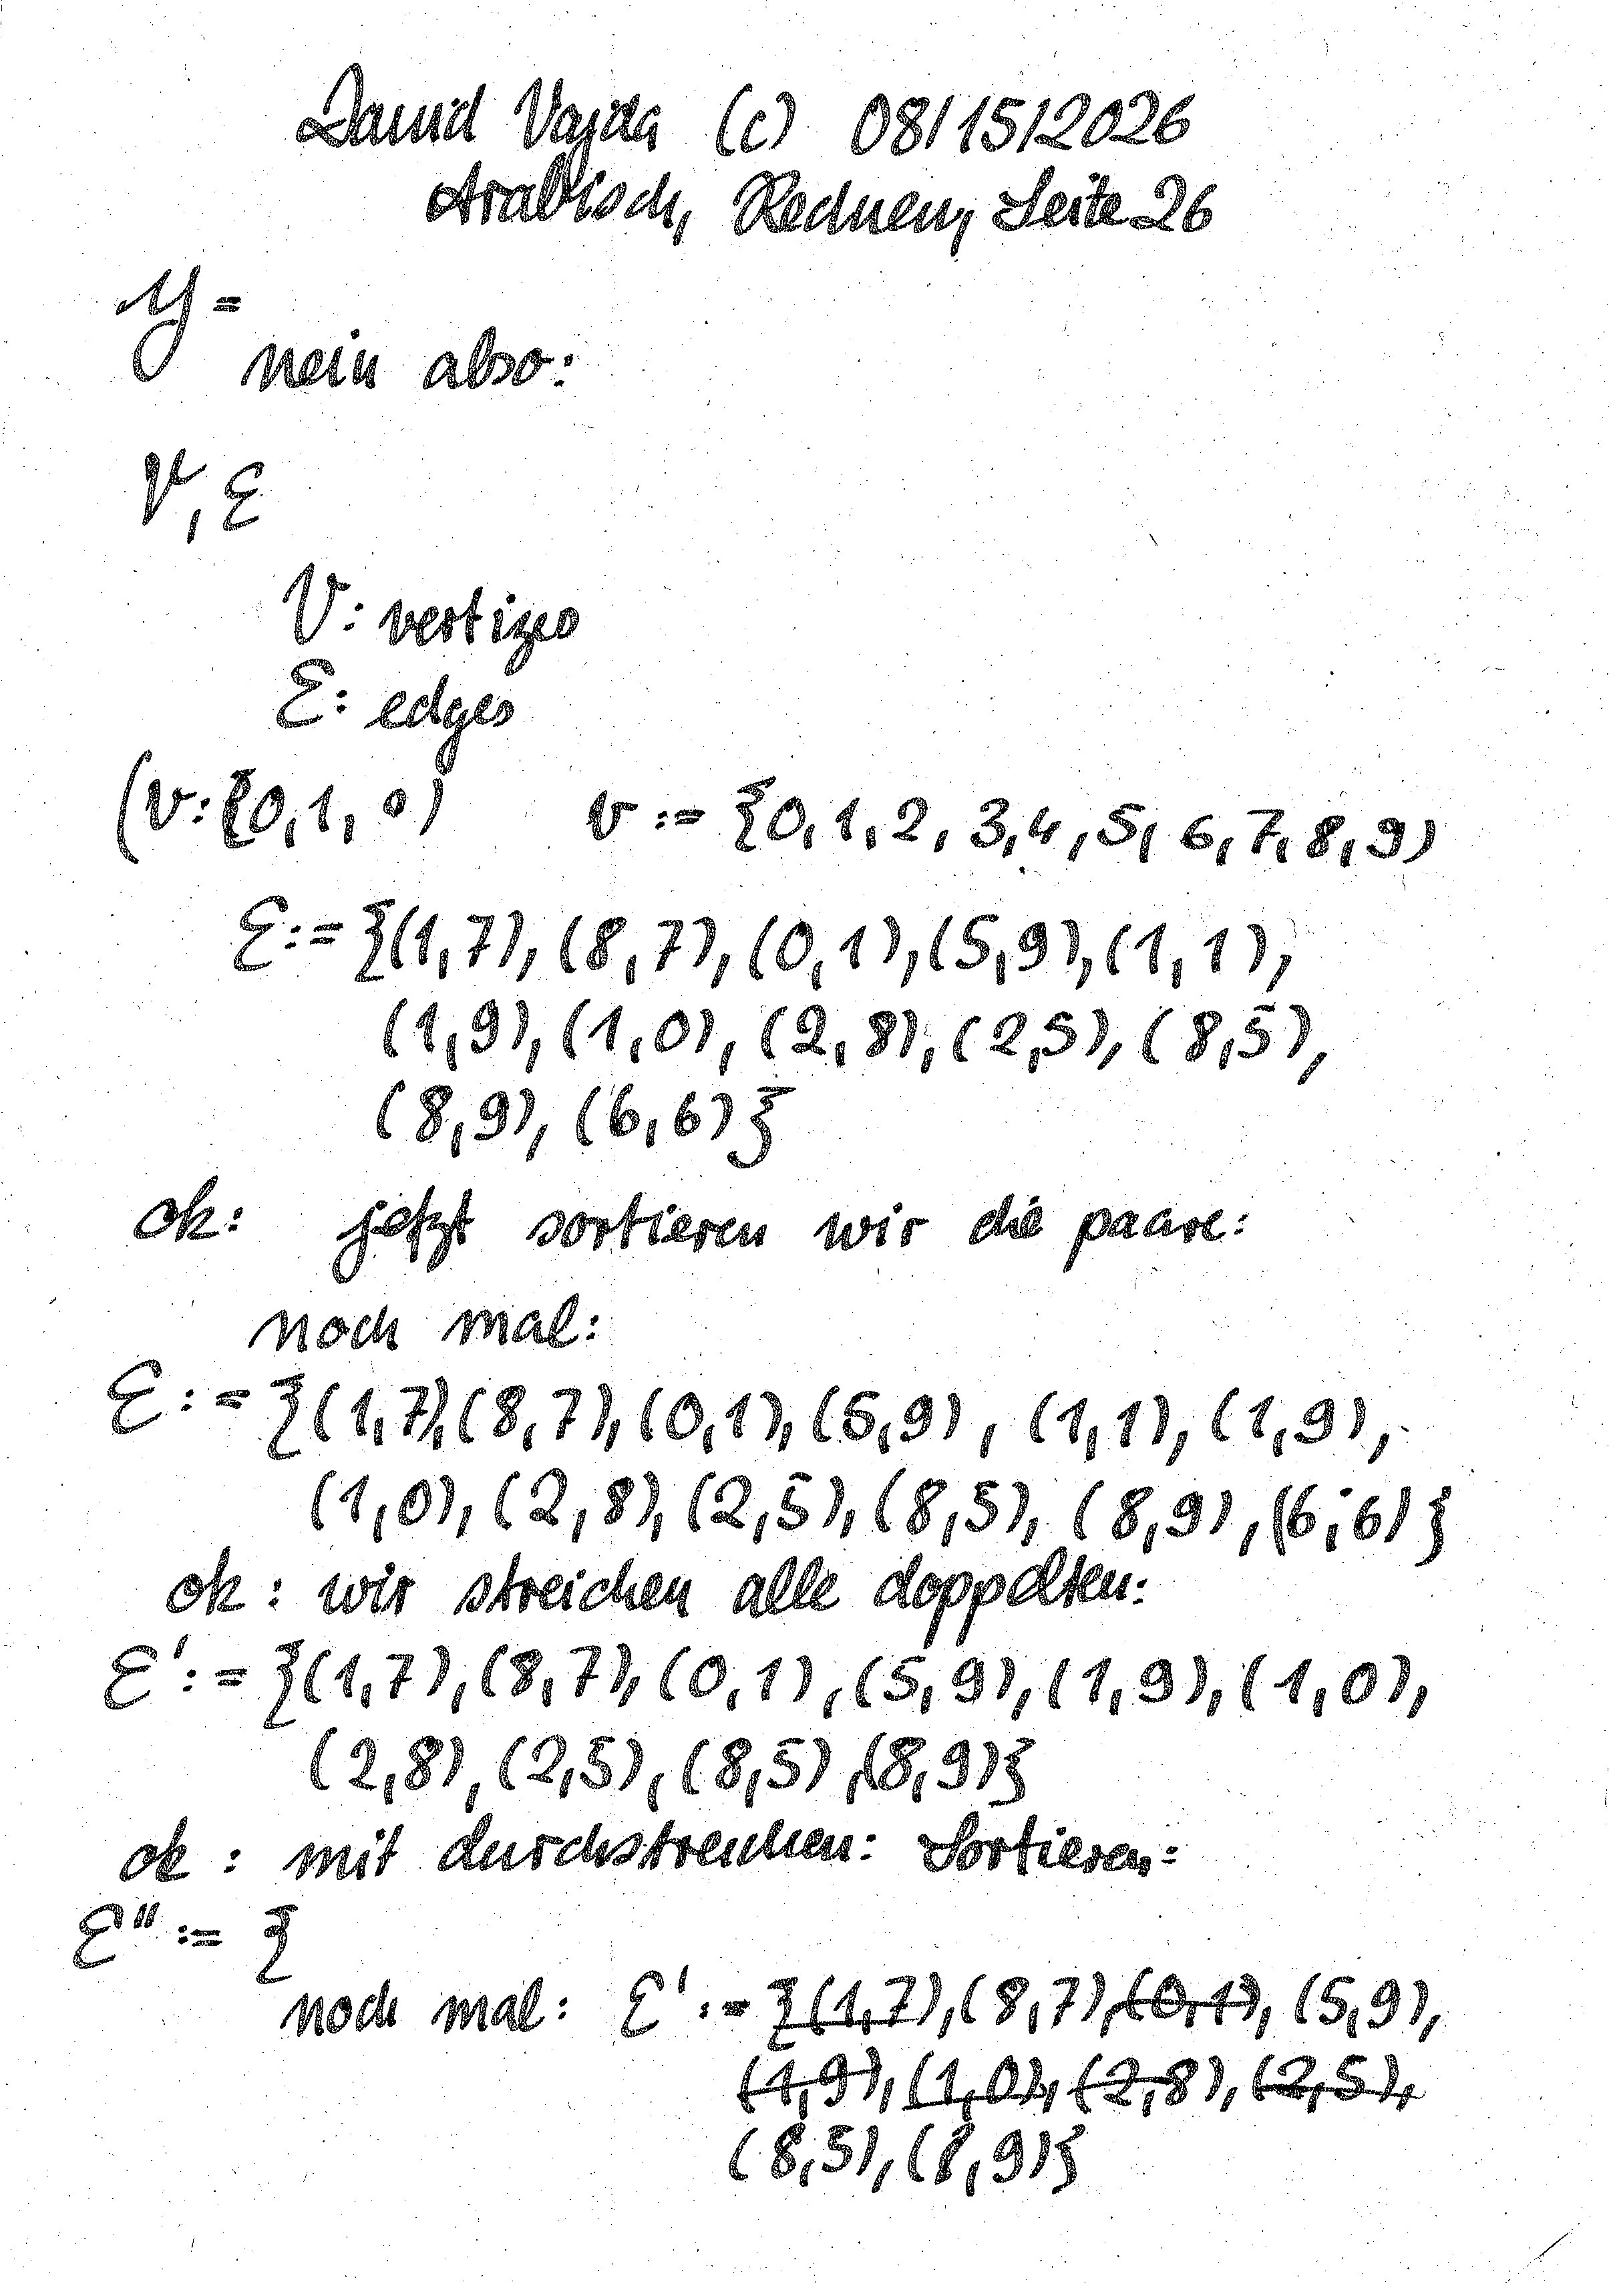 David Vajda (c) 08/15/2026
Arabisch, Rechnen, Seite 26
y =
nein also:
V, E
V: vertizes
E: edges
(V:{0,1, 0) V := {0,1,2,3,4,5,6,7,8,9)
E:={(1,7),(8,7),(0,1),(5,9),(1,1),
(1,9),(1,0),(2,8),(2,5),(8,5),
(8,9),(6,6)}
ok: jetzt sortieren wir die paare:
noch mal:
E := {(1,7),(8,7),(0,1),(5,9),(1,1),(1,9),
(1,0),(2,8),(2,5),(8,5),(8,9),(6,6)}
ok: wir streichen alle doppelten:
E' := {(1,7),(8,7),(0,1),(5,9),(1,9),(1,0),
(2,8),(2,5),(8,5),(8,9)}
ok: mit durchstreichen: Sortieren:
E'' := {
noch mal: E' := {(1,7),(8,7),(0,1),(5,9),
(1,9),(1,0),(2,8),(2,5),
(8,5),(8,9)}